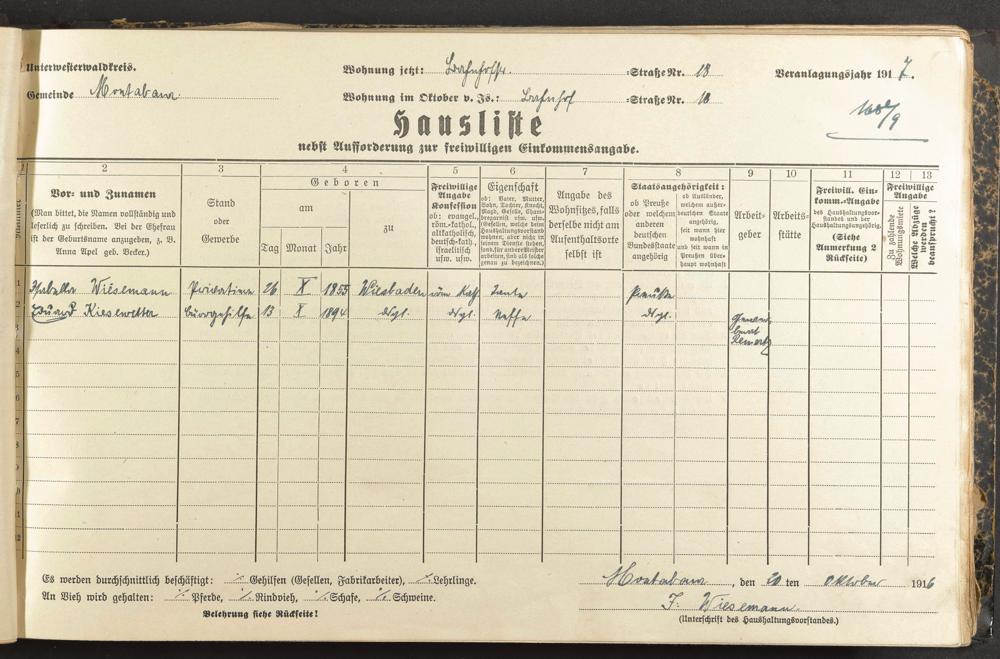 Unterwesterwaldkreis.
Wohnung jetzt: Bahnhofstr. =Straße Nr. 18
Veranlagungsjahr 1917.
Gemeinde Montabaur
Wohnung im Oktober v. Js.: Bahnhof =Straße Nr. 18
Hausliste
nebst Aufforderung zur freiwilligen Einkommensangabe.
1 2 3 4 5 6 7 8 9 10 11 12 13
Vor- und Zunamen
(Man bittet, die Namen vollständig und
leserlich zu schreiben. Bei der Ehefrau
ist der Geburtsname anzugeben, z. B.
Anna Apel geb. Becker.)
Stand
oder
Gewerbe
Geboren
am
Tag Monat Jahr
zu
Freiwillige
Angabe
Konfession
ob: evangel.,
röm.-kathol.,
altkatholisch,
deutsch-kath.,
israelitisch
usw. usw.
Eigenschaft
ob: Vater, Mutter,
Sohn, Tochter, Knecht,
Magd, Geselle, Cham-
bregarnist usw. usw.
(Gesellen, welche beim
Haushaltungsvorstand
wohnen, aber nicht in
seinem Dienste stehen,
sond. für andere Meister
arbeiten, sind als solche
genau zu bezeichnen.)
Angabe des
Wohnsitzes, falls
derselbe nicht am
Aufenthaltsorte
selbst ist
Staatsangehörigkeit:
ob Preuße
oder welchem
anderen
deutschen
Bundesstaate
angehörig
ob Ausländer,
welchem außer-
deutschen Staate
angehörig,
seit wann hier
wohnhaft
und seit wann in
Preußen über-
haupt wohnhaft
Arbeit-
geber
Arbeits-
stätte
Freiwill. Ein-
komm.-Angabe
des Haushaltungsvor-
standes und der
Haushaltungsangehörig.
(Siehe
Anmerkung 2
Rückseite)
Freiwillige
Angabe
Zu zahlende
Wohnungsmiete
Welche Abzüge
werden
beansprucht?
1 Isabella Wiesemann Privatiere 26 X 1855 Wiesbaden röm Kath Tante Preußin
2 Eduard Kiesewetter Bürogehilfe 13 X 1894 dsgl. dsgl. Neffe dsgl.
3
4
5
6
7
8
9
10
11
12
Es werden durchschnittlich beschäftigt: ·/. Gehilfen (Gesellen, Fabrikarbeiter), ·/. Lehrlinge.
An Vieh wird gehalten: ·/. Pferde, ·/. Rindvieh, ·/. Schafe, ·/. Schweine.
Belehrung siehe Rückseite!
Montabaur, den 20 ten Oktober 1916
I. Wiesemann.
(Unterschrift des Haushaltungsvorstandes.)